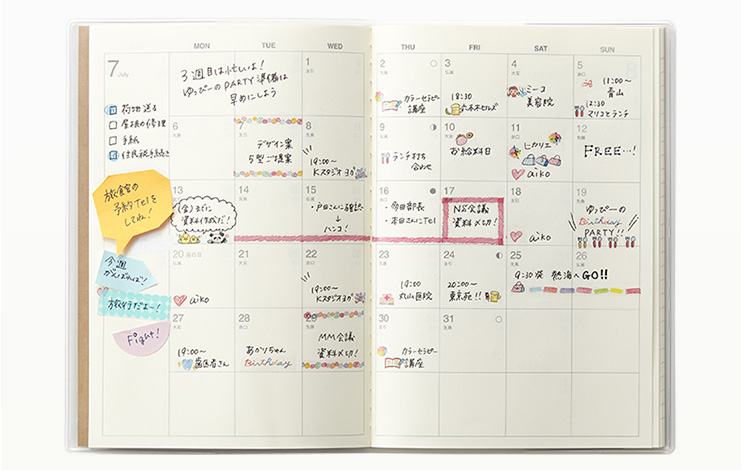 MON TUE WED THU FRI SAT SUN
7
July
3週目は忙しいよ!
ゆっぴーのPARTY準備は
早めにしよう
荷物送る
屋根の修理
手紙
住民税手続き
1
友引
2
先負
カラーセラピー
講座
3
仏滅
18:30
六本木ヒルズ
4
大安
ミーコ
美容院
5
赤口
11:00〜
青山
12:30
マリコとランチ
6
7
デザイン案
5型ご提案
8
19:00〜
Kスタジオ
9
ランチ打ち
合わせ
10
お給料日
11
ヒカリエ
aiko
12
FREE…!
旅館の
予約Telを
してね!
13
(金)までに
資料作成だ!
14
15
・戸田さんに確認
↓
ハンコ!
16
・今田部長
・本田さんにTel
17
NS会議
資料〆切!
18
aiko
19
ゆっぴーの
Birthday
PARTY!!
今週
がんばれば!
旅行だよー!
20
海の日
aiko
21
22
19:00〜
Kスタジオ
23
丸山医院
24
20:00〜
東京苑!!
25
9:30発 熱海へGO!!
26
Fight!
27
19:00〜
歯医者さん
28
あかりちゃん
Birthday
29
MM会議
資料〆切!
30
カラーセラピー
講座
31